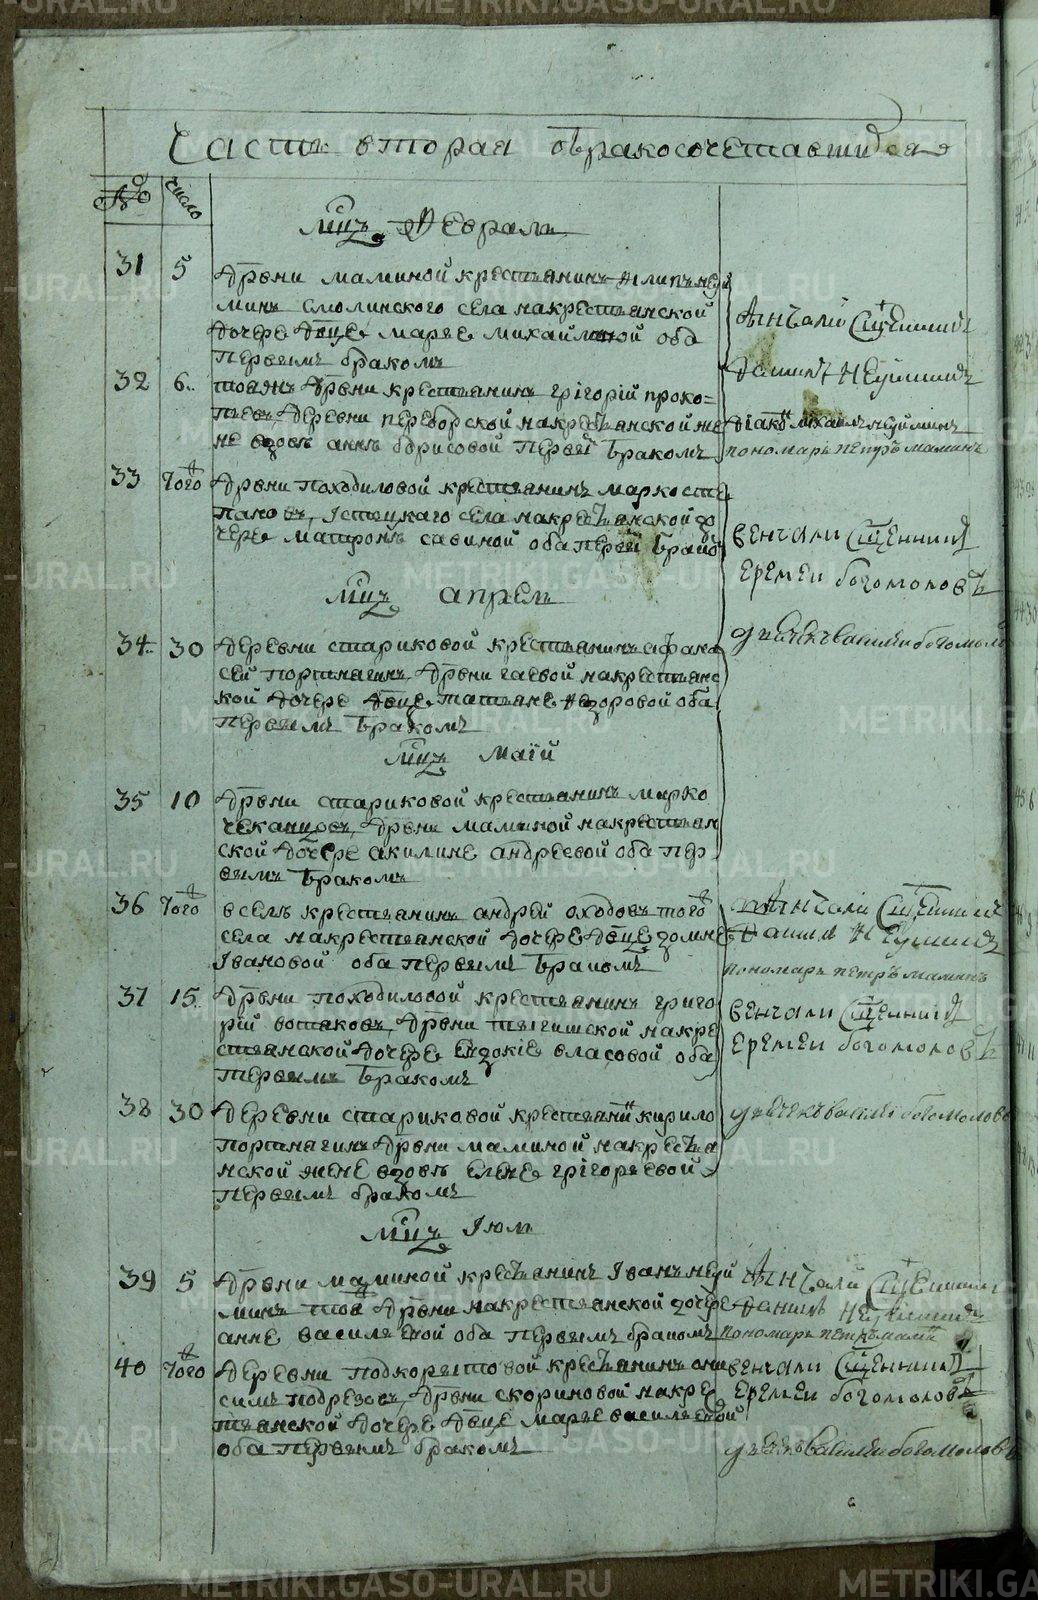 Часть вторая обракосочетавшихся
№ число
мцъ Февраль
31 5 дрвни маминой крестьянинъ Филипъ ней
минъ смолинского села накрестьянской
дочере двце марье михайловой оба
первымъ бракомъ
венчали Сщенникъ
Данилъ Неуиминъ
32 6 тоя дрвни крестьянинъ григорій проко=
пьевъ, деревни переборской накрестьянской же
не вдове анне борисовой первы бракомъ
діаконъ михаилъ нейминъ
пономарь петръ маминъ
33 того дрвни походиловой крестьянинъ марко сте
пановъ, Істецкаго села накрестьянской до
чере матроне савиной оба первы брако
венчали Сщенникъ
еремеи богомоловъ
дьячекъ василеи богомоловъ
мцъ апрель
34 30 деревни стариковой крестьянинъ афана
сей портнягинъ дрвни гаевой накрестьянс
кой дочере двце татьяне Федоровой оба
первымъ бракомъ
мцъ маій
35 10 дрвни стариковой крестьянинъ марко
чеканцовъ, дрвни маминой накрестьян
ской дочере акилине андреевой оба пер
вымъ бракомъ
36 того в селе крестьянинъ андрей оходовъ того
села накрестьянской дочере двце домне
Івановой оба первымъ бракомъ
венчали Сщенникъ
Данилъ Неуиминъ
пономарь петръ маминъ
37 15 дрвни походиловой крестьянинъ григо
рій вотяковъ, дрвни тыгишской накре
стьянской дочере Евдокіе власовой оба
первымъ бракомъ
венчали Сщенникъ
еремеи богомоловъ
38 30 деревни стариковой крестьянинъ кирило
портнягинъ дрвни маминой накрестья
нской жене вдове елене григорьевой
первымъ бракомъ
дьячекъ василеи богомоловъ
мцъ Іюль
39 5 дрвни маминой крестьянинъ Іванъ ней
минъ тоя дрвни накрестьянской дочере
анне василье
вой оба первымъ бракомъ
венчали Сщенникъ
Данилъ Неуиминъ
пономарь петръ маминъ
40 того деревни подкорытовой крестьянинъ они
симъ подрезовъ, дрвни скориновой накре
стьянской дочере двце марье васильевой
оба первымъ бракомъ
венчали Сщенникъ
еремеи богомоловъ
дьячекъ василеи богомоловъ
METRIKI.GASO-URAL.RU